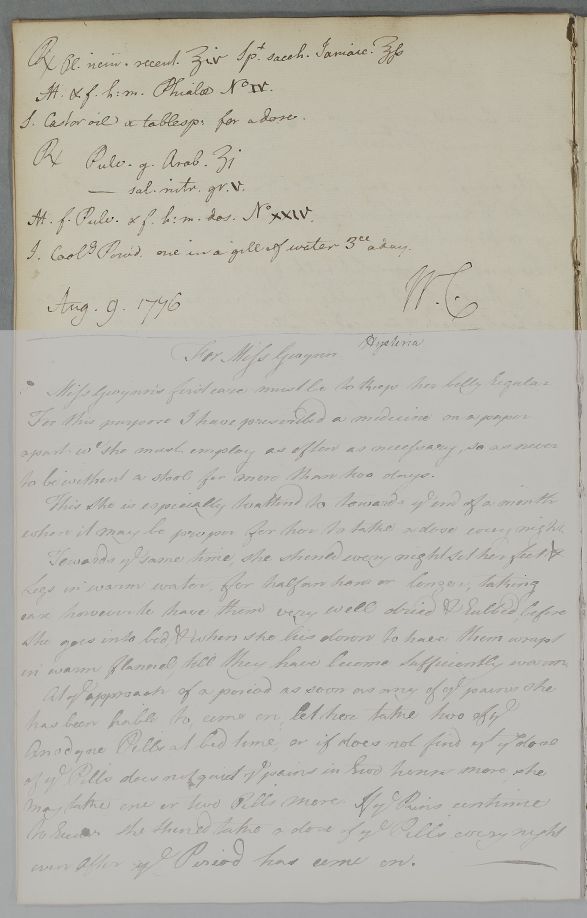 Rx Ol. ricin. recent. ℥iv Spt sacch. Jamaic. ℥fs
M. & f. h: m. Phialæ No IV.
S. Castor oil a tablesp: for a dose.
Rx Pulv. g. Arab. ʒi
— sal. nitr. gr. v.
M. f. Pulv. & f. h: m. dos. No XXIV.
S. Coolg Powd. one in a gill of water 3ce a day.
Aug. 9. 1776 W. C.
For Miss Gwynn Hysteria
Miss Gwynn's first care must be to keep her belly regular
For this purpose I have prescribed a medicine on a paper
apart wh she must employ as often as necessary, so as never
to be without a stool for more than two days.
This she is especially to attend to towards ye end of a month
when it may be proper for her to take a dose every night
Towards ye same time, she should every night set her feet &
Legs in warm water, for half an hour or longer, taking
care however to have them very well dried & Rubbed before
she goes into bed & when she lies down to have them wrapt
in warm flannel till they have become sufficiently warm
At ye approach of a period as soon as any of ye pains she
has been liable to, come on, let her take two of ye
Anodyne Pills at bed time, or if does not find yt ye dose
of ye Pills does not quiet ye pains in two hours more, she
may take one or two Pills more. If ye Pains continue
to Recur she should take a dose of ye Pills every night
even after ye Period has come on.